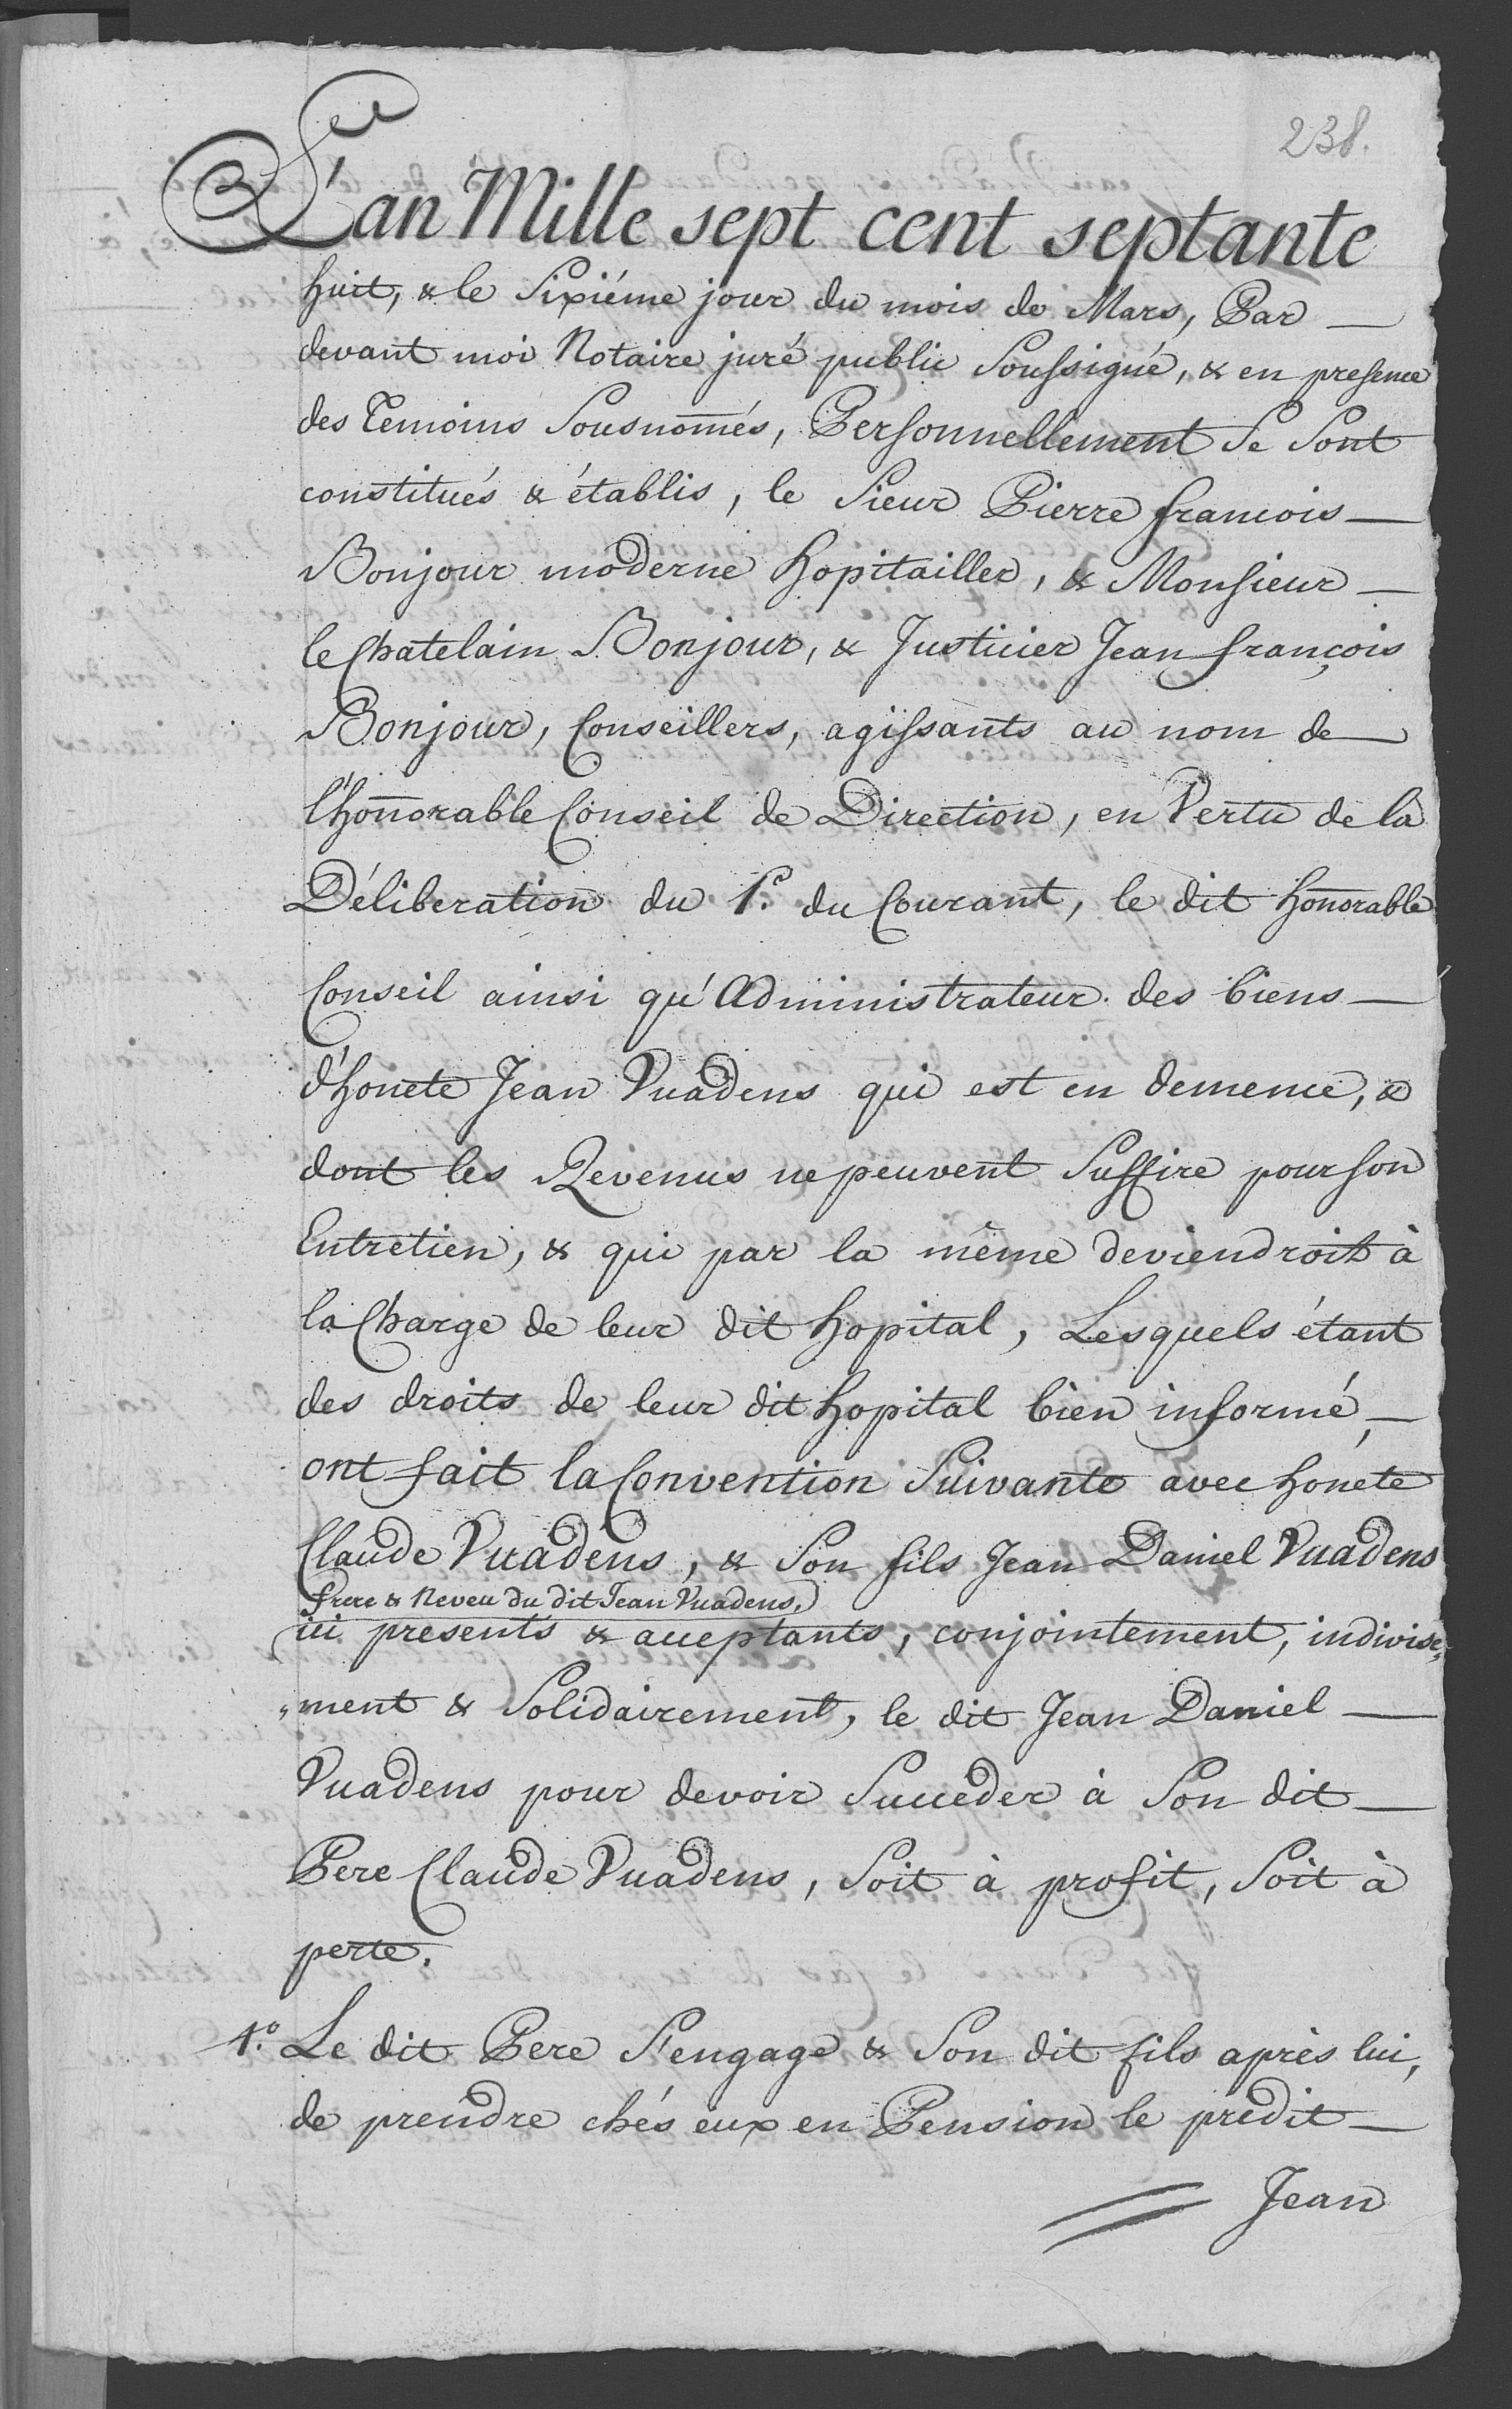 238.
L'an Mille sept cent septante
huit, & le Sixiéme jour du mois de Mars, Par
devant moi Notaire juré public Soussigné, & en presence
des Temoins Sousnom̄és, Personnellement Se Sont
constitués & établis, le Sieur Pierre francois
Bonjour moderne hopitailler, & Monsieur
le Chatelain Bonjour, & Justicier Jean françois
Bonjour, Conseillers, agissants au nom de
l'hon̄orable Conseil de Direction, en Vertu de la
Déliberation du 1.er du Courant, le dit hon̄orable
Conseil ainsi qu'Administrateur des biens
d'honete Jean Vuadens qui est en demence, &
dont les Revenus ne peuvent Suffire pour son
Entretien, & qui par la même deviendroit à
la Charge de leur dit hopital, Lesquels étant
des droits de leur dit hopital bien informé,
ont fait la Convention Suivante avec honéte
Claude Vuadens, & Son fils Jean Daniel Vuadens
frere & Neveu du dit Jean Vuadens,
ici presents & acceptants, conjointement, indivise„
„ment & Solidairement, le dit Jean Daniel
Vuadens pour devoir Succéder à Son dit
Pere Claude Vuadens, Soit à profit, Soit à
perte.
1.o Le dit Pere S'engage & Son dit fils après lui,
de prendre chés eux en Pension le prédit
Jean